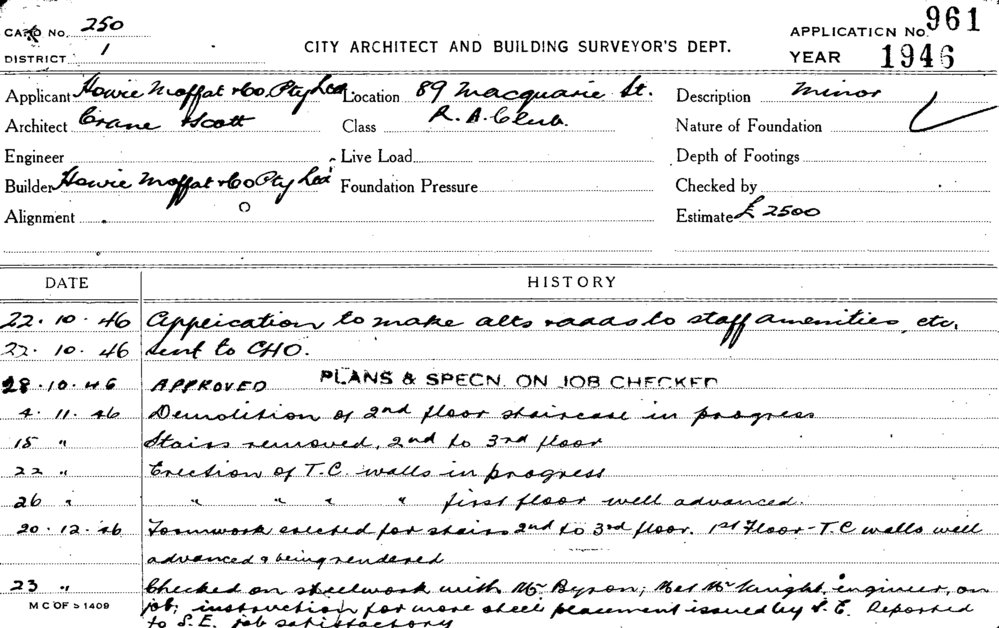 CARD NO. 250
DISTRICT 1
CITY ARCHITECT AND BUILDING SURVEYOR'S DEPT.
APPLICATION NO. 961
YEAR 1946
Applicant Howie Moffat & Co. Pty Ltd. Location 89 Macquarie St. Description Minor
Architect Crane & Scott Class R.A. Club. Nature of Foundation
Engineer Live Load Depth of Footings
Builder Howie Moffat & Co Pty Ltd Foundation Pressure Checked by
Alignment Estimate £2500
DATE HISTORY
22.10.46 Application to make alts & adds to staff amenities, etc.
22.10.46 Sent to CHO.
28.10.46 APPROVED PLANS & SPECN. ON JOB CHECKED
4.11.46 Demolition of 2nd floor staircase in progress
15 " Stairs removed, 2nd to 3rd floor
22 " Erection of T.C. walls in progress
26 " " " " " first floor well advanced.
20.12.46 Formwork erected for stairs 2nd to 3rd floor. 1st Floor - T.C walls well
advanced & being rendered
23 " Checked on steelwork with Mr Byron; Met Mr Knight, engineer, on
M C OF S 1409
job; instruction for more steel placement issued by S.E. Reported
to S.E. job satisfactory